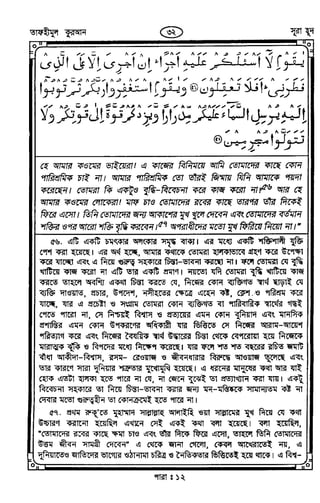 তাফহীমুল কুরআন
৩২
সূরা হূদ
يٰقَوْمِ لَآ اَسْئَلُكُمْ عَلَيْهِ اَجْرًا ۖ اِنْ اَجْرِيَ اِلَّا عَلَى الَّذِيْ
فَطَرَنِيْ ۖ اَفَلَا تَعْقِلُوْنَ ۞ وَيٰقَوْمِ اسْتَغْفِرُوْا رَبَّكُمْ ثُمَّ تُوْبُوْٓا
اِلَيْهِ يُرْسِلِ السَّمَآءَ عَلَيْكُمْ مِّدْرَارًا وَّيَزِدْكُمْ قُوَّةً اِلٰى قُوَّتِكُمْ وَلَا
تَتَوَلَّوْا مُجْرِمِيْنَ ۞
হে আমার কওমের ভাইয়েরা! এ কাজের বিনিময়ে আমি তোমাদের কাছে কোন
পারিশ্রমিক চাই না। আমার পারিশ্রমিক তো তাঁরই জিম্মায় যিনি আমাকে পয়দা
করেছেন। তোমরা কি একটুও বুদ্ধি-বিবেচনা করে কাজ করো না?৫৬ আর হে
আমার কওমের লোকেরা! মাফ চাও তোমাদের রবের কাছে তারপর তাঁর দিকেই
ফিরে এসো। তিনি তোমাদের জন্য আকাশের মুখ খুলে দেবেন এবং তোমাদের বর্তমান
শক্তির ওপর আরো শক্তি বৃদ্ধি করবেন।৫৭ অপরাধীদের মতো মুখ ফিরিয়ে নিয়ো না।"
৫৬. এটি একটি চমৎকার অলংকার সমৃদ্ধ বাক্য। এর মধ্যে একটি শক্তিশালী যুক্তি
পেশ করা হয়েছে। এর অর্থ হচ্ছে, আমার কথাকে তোমরা হালকাভাবে গ্রহণ করে উপেক্ষা
করে যাচ্ছো এবং এ নিয়ে গুরুত্ব সহকারে চিন্তা-ভাবনা করছো না। ফলে তোমরা যে বুদ্ধি
খাটিয়ে কাজ করো না এটি তার একটি প্রমাণ। নয়তো যদি তোমরা বুদ্ধি খাটিয়ে কাজ
করতে তাহলে অবশ্যি একথা চিন্তা করতে যে, নিজের কোন ব্যক্তিগত স্বার্থ ছাড়াই যে
ব্যক্তি দাওয়াত, প্রচার, উপদেশ, নসীহতের ক্ষেত্রে এহেন কষ্ট, ক্লেশ ও পরিশ্রম করে
যাচ্ছে, যার এ প্রচেষ্টা ও সংগ্রামে তোমরা কোন ব্যক্তিগত বা পারিবারিক স্বার্থের গন্ধই
পেতে পারো না, সে নিশ্চয়ই বিশ্বাস ও প্রত্যয়ের এমন কোন বুনিয়াদ এবং মানসিক
প্রশান্তির এমন কোন উপকরণের অধিকারী যার ভিত্তিতে সে নিজের আরাম-আয়েশ
পরিত্যাগ করে এবং নিজের বৈষয়িক স্বার্থ উদ্ধারের চিন্তা থেকে বেপরোয়া হয়ে নিজেকে
মারাত্মক ঝুঁকি ও বিপদের মধ্যে নিক্ষেপ করেছে। যার ফলে শত শত বছরের রচিত জমাট
বাঁধা আকীদা-বিশ্বাস, রসম-রেওয়াজ ও জীবনধারার বিরুদ্ধে আওয়াজ তুলেছে এবং
তার কারণে সারা দুনিয়ার শত্রুতার মুখোমুখি হয়েছে। এ ধরনের মানুষের কথা আর যাই
হোক এতটা হালকা হতে পারে না যে, না জেনে বুঝেই তা প্রত্যাখ্যান করা যায়। একটু
বিবেচনা সহকারে তা নিয়ে চিন্তা-ভাবনা করার জন্য মন-মস্তিষ্ককে সামান্যতম কষ্ট না
দেবার মতো গুরুত্বহীন তা কোনক্রমেই হতে পারে না।
৫৭. প্রথম রুকূ'তে মুহাম্মাদ সাল্লাল্লাহু আলাইহি ওয়া সাল্লামের মুখ দিয়ে যে কথা
উচ্চারণ করানো হয়েছিল এখানে সেই একই কথা বলা হয়েছে। বলা হয়েছিল,
"তোমাদের রবের কাছে ক্ষমা চাও এবং তাঁর দিকে ফিরে এসো, তাহলে তিনি তোমাদের
উত্তম জীবন সামগ্রী দেবেন" এ থেকে জানা গেলো, কেবল আখেরাতেই নয়, এ
দুনিয়াতেও জাতিদের ভাগ্যের ওঠানামা চরিত্র ও নৈতিকতার ভিত্তিতেই হয়ে থাকে। এ বিশ্ব-
পারা : ১২